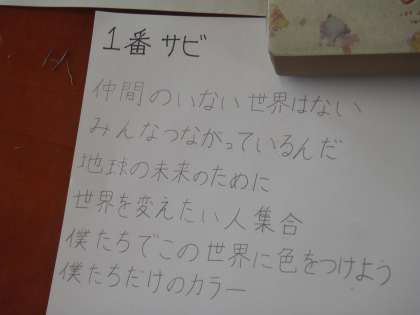 1番 サビ
仲間のいない世界はない
みんなつながっているんだ
地球の未来のために
世界を変えたい人集合
僕たちでこの世界に色をつけよう
僕たちだけのカラー